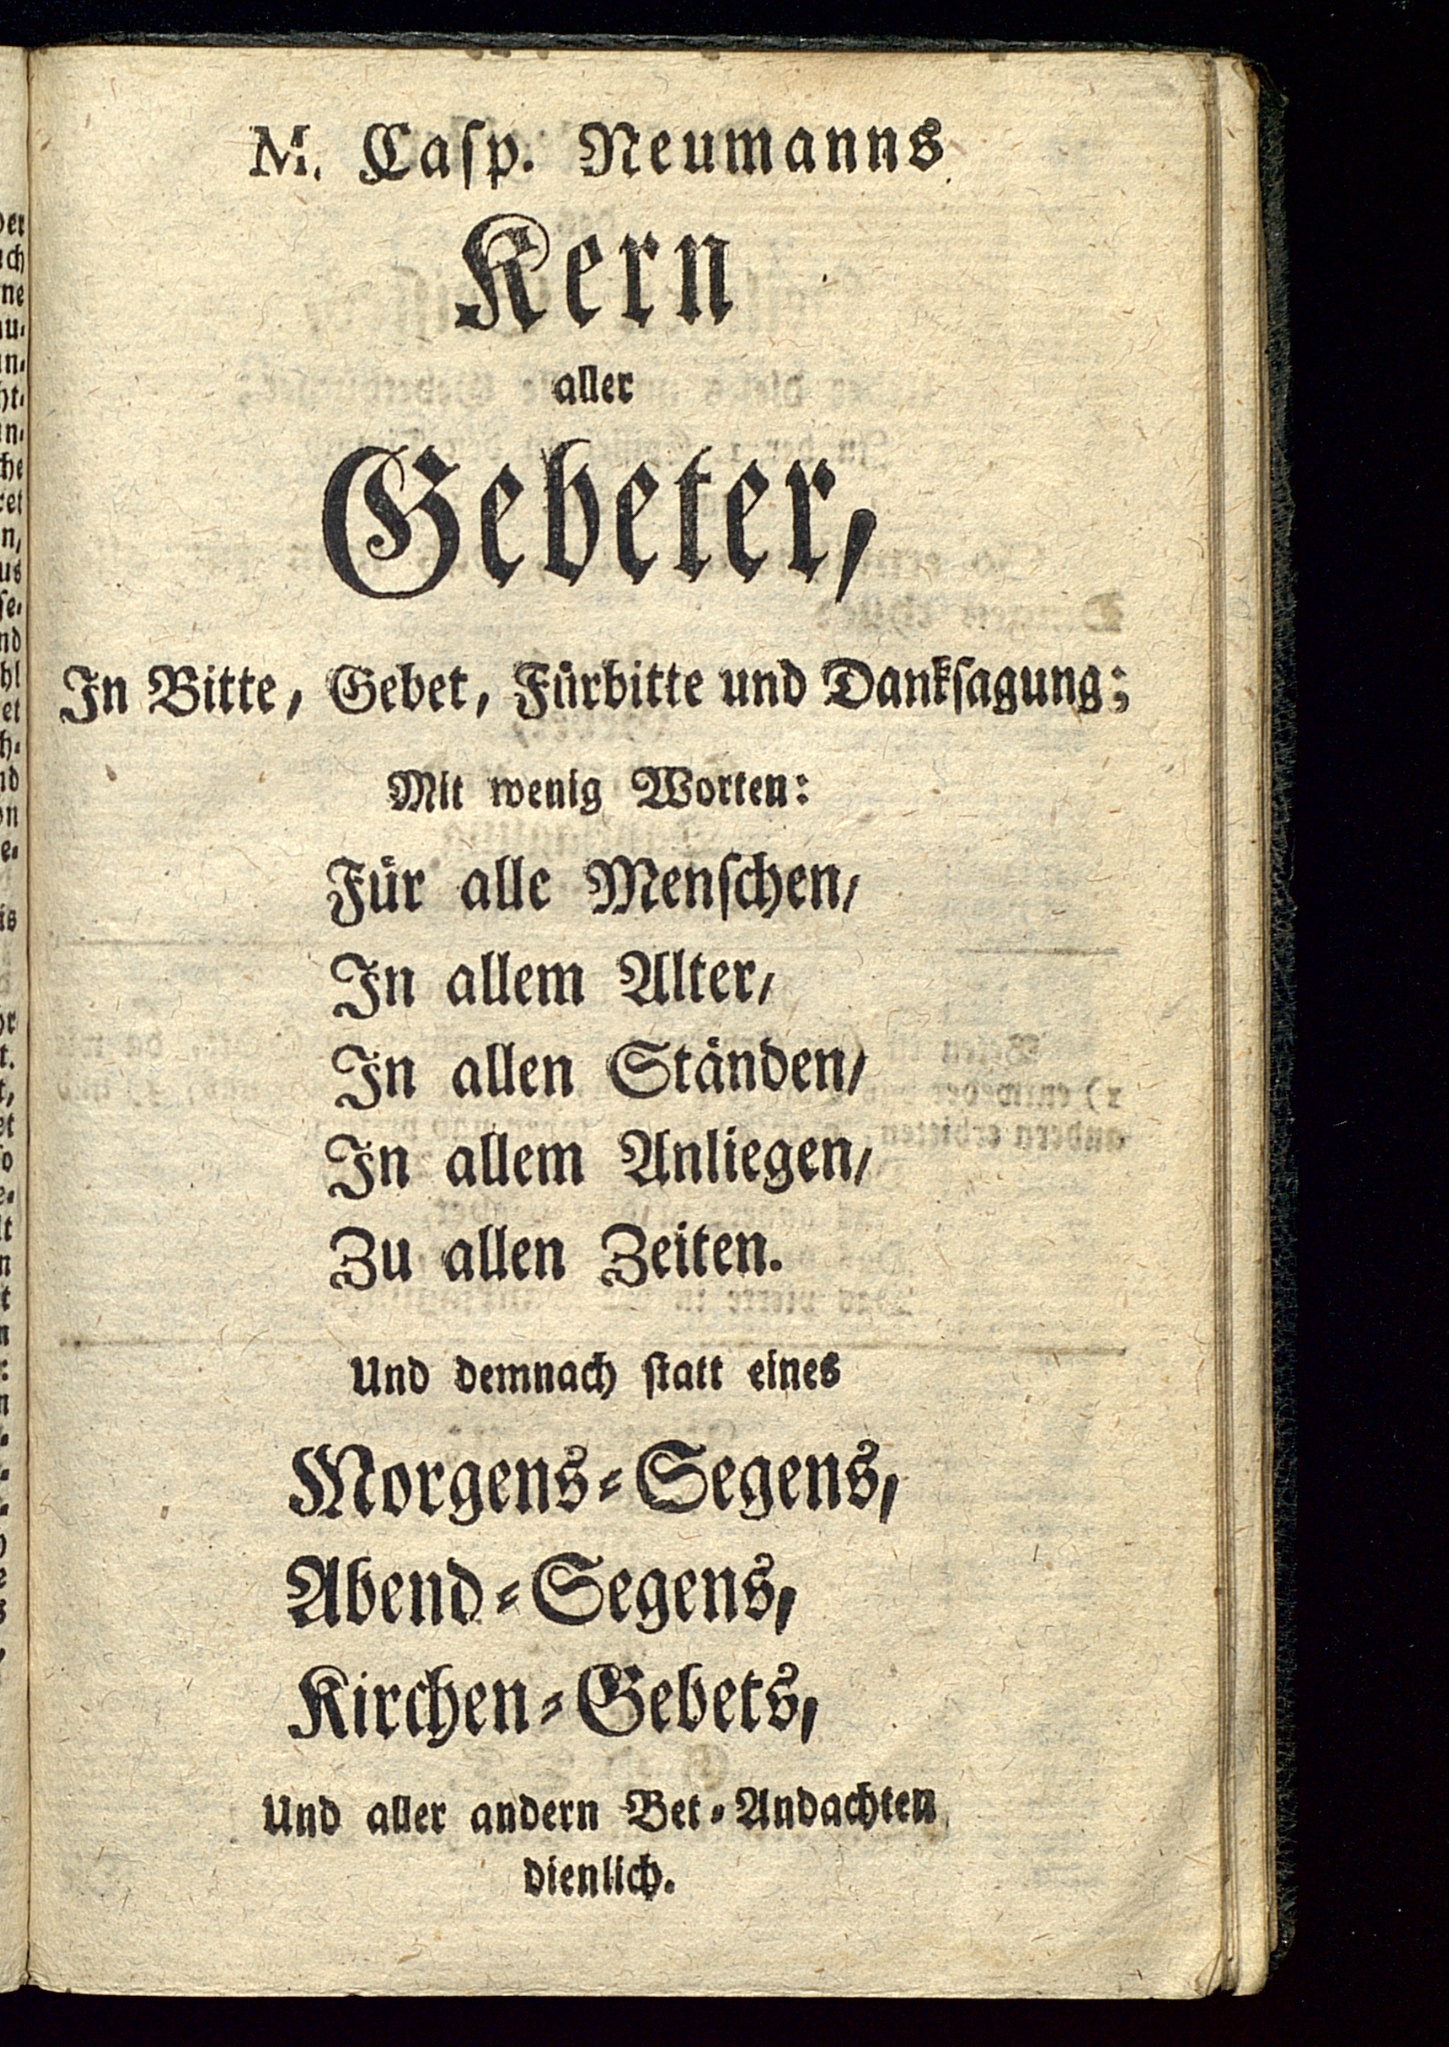 M. Casp. Neumanns
Kern
aller
Gebeter,
In Bitte, Gebet, Fürbitte und Danksagung;
Mit wenig Worten:
Für alle Menschen,
In allem Alter,
In allen Ständen,
In allem Anliegen,
Zu allen Zeiten.
Und demnach statt eines
Morgens-Segens,
Abend-Segens,
Kirchen-Gebets,
Und aller andern Bet-Andachten
dienlich.